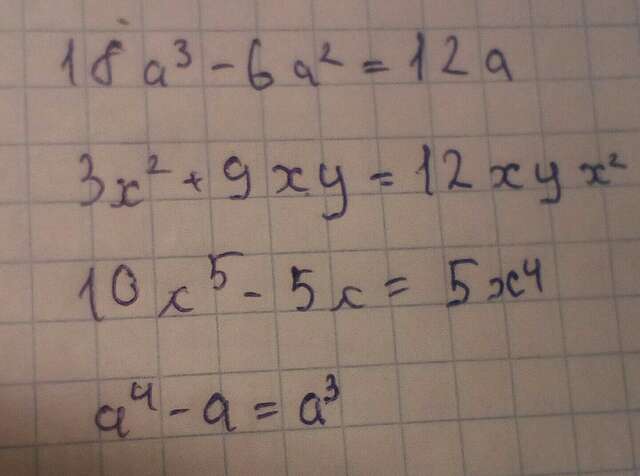 18a³ - 6a² = 12a
3x² + 9xy = 12xyx²
10x⁵ - 5x = 5x⁴
a⁴ - a = a³